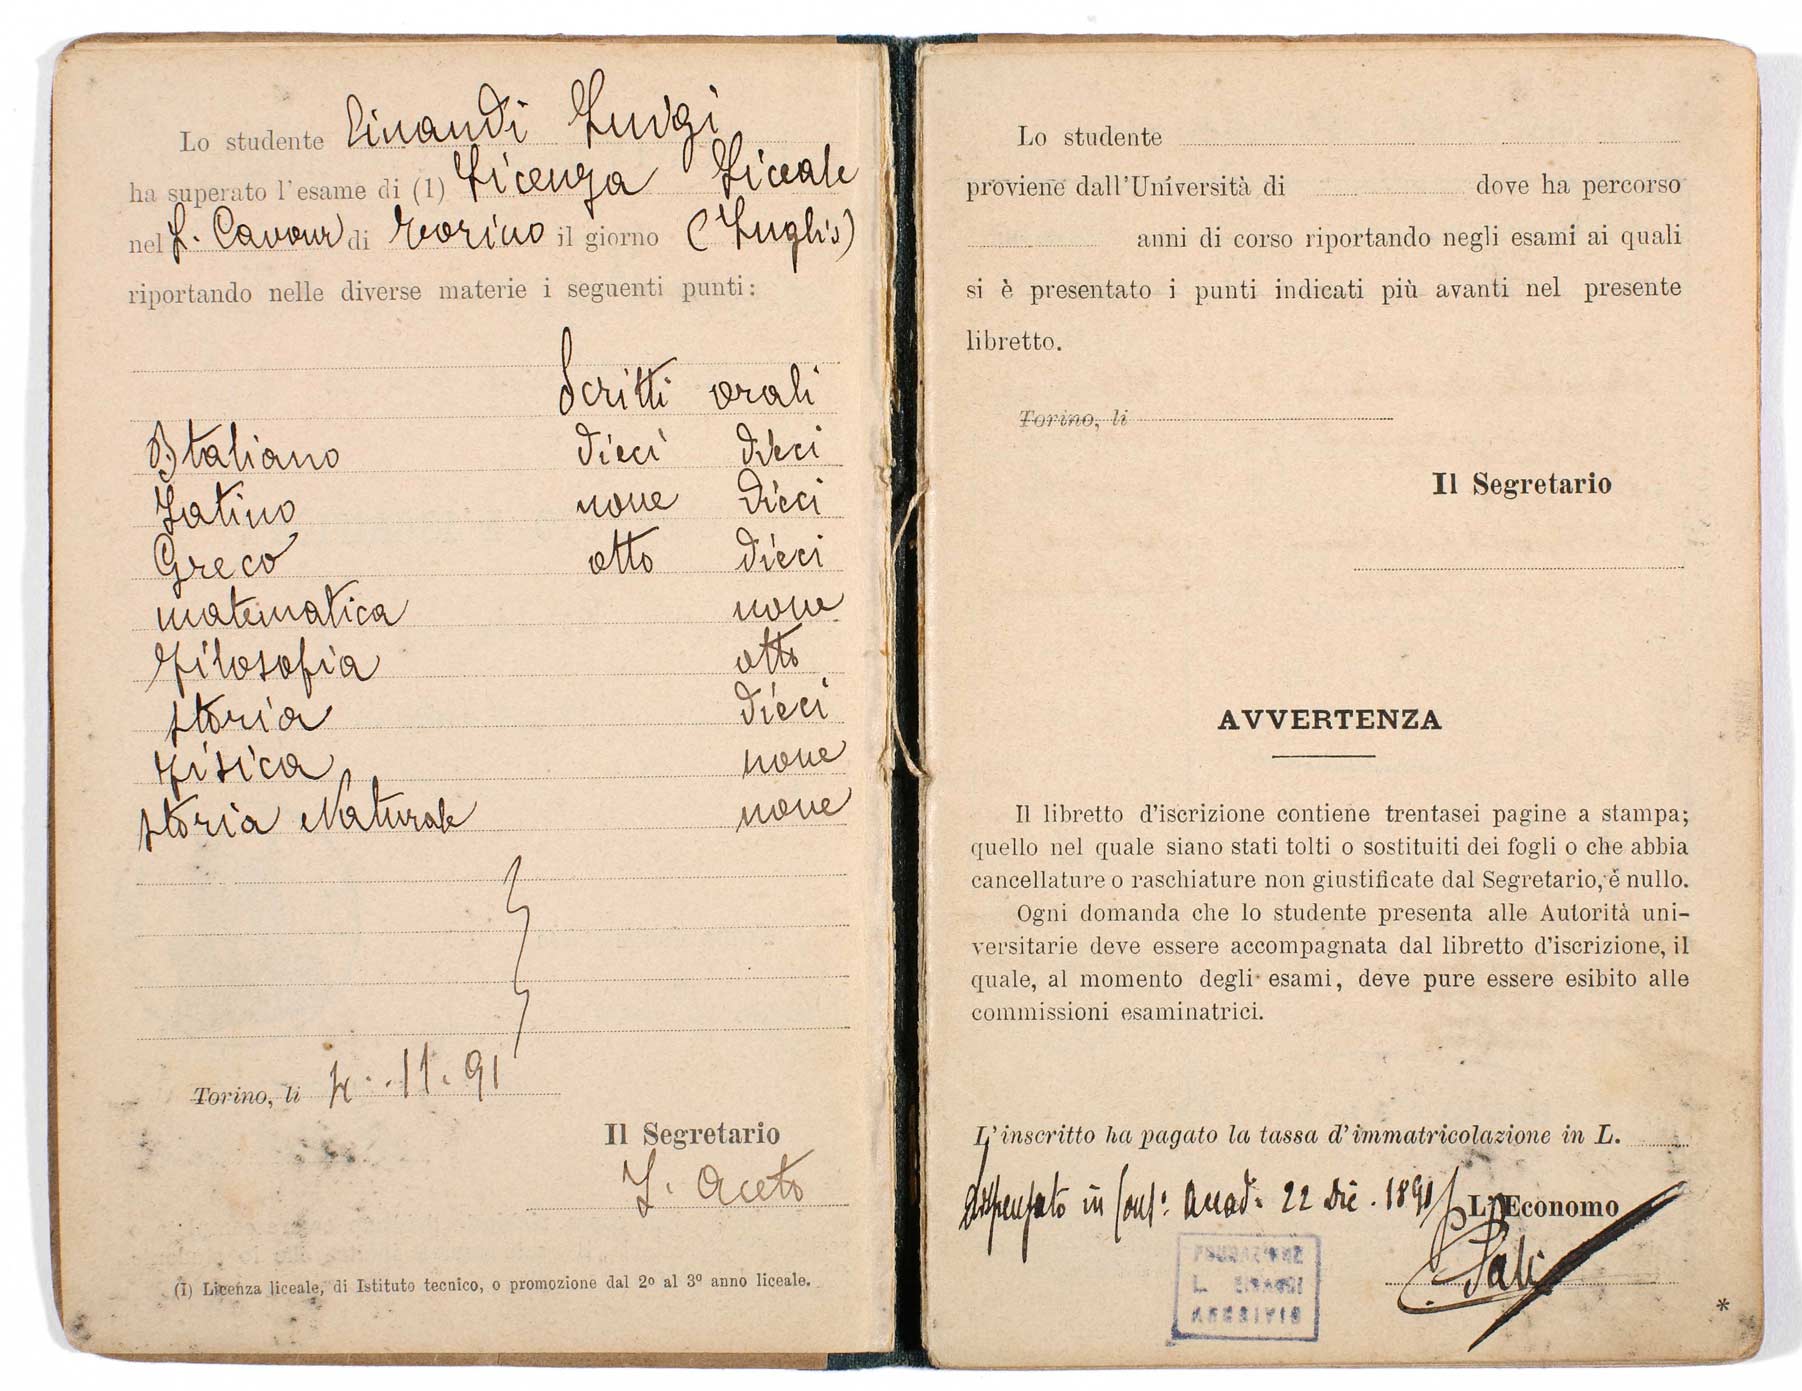 Lo studente Einaudi Luigi
ha superato l'esame di (1) Licenza Liceale
nel L. Cavour di Torino il giorno (Luglio)
riportando nelle diverse materie i seguenti punti:
Scritti orali
Italiano dieci dieci
Latino nove dieci
Greco otto dieci
matematica nove
Filosofia otto
Storia dieci
Fisica nove
Storia Naturale nove
Torino, li 4.11.91
Il Segretario
L. Aceto
(1) Licenza liceale, di Istituto tecnico, o promozione dal 2º al 3º anno liceale.
Lo studente
proviene dall'Università di dove ha percorso
anni di corso riportando negli esami ai quali
si è presentato i punti indicati più avanti nel presente
libretto.
Torino, li
Il Segretario
AVVERTENZA
Il libretto d'iscrizione contiene trentasei pagine a stampa;
quello nel quale siano stati tolti o sostituiti dei fogli o che abbia
cancellature o raschiature non giustificate dal Segretario, è nullo.
Ogni domanda che lo studente presenta alle Autorità uni-
versitarie deve essere accompagnata dal libretto d'iscrizione, il
quale, al momento degli esami, deve pure essere esibito alle
commissioni esaminatrici.
L'inscritto ha pagato la tassa d'immatricolazione in L.
dispensato in Cons. Accad. 22 Dic. 1891
L'Economo
FONDAZIONE
L. EINAUDI
ARCHIVIO
*